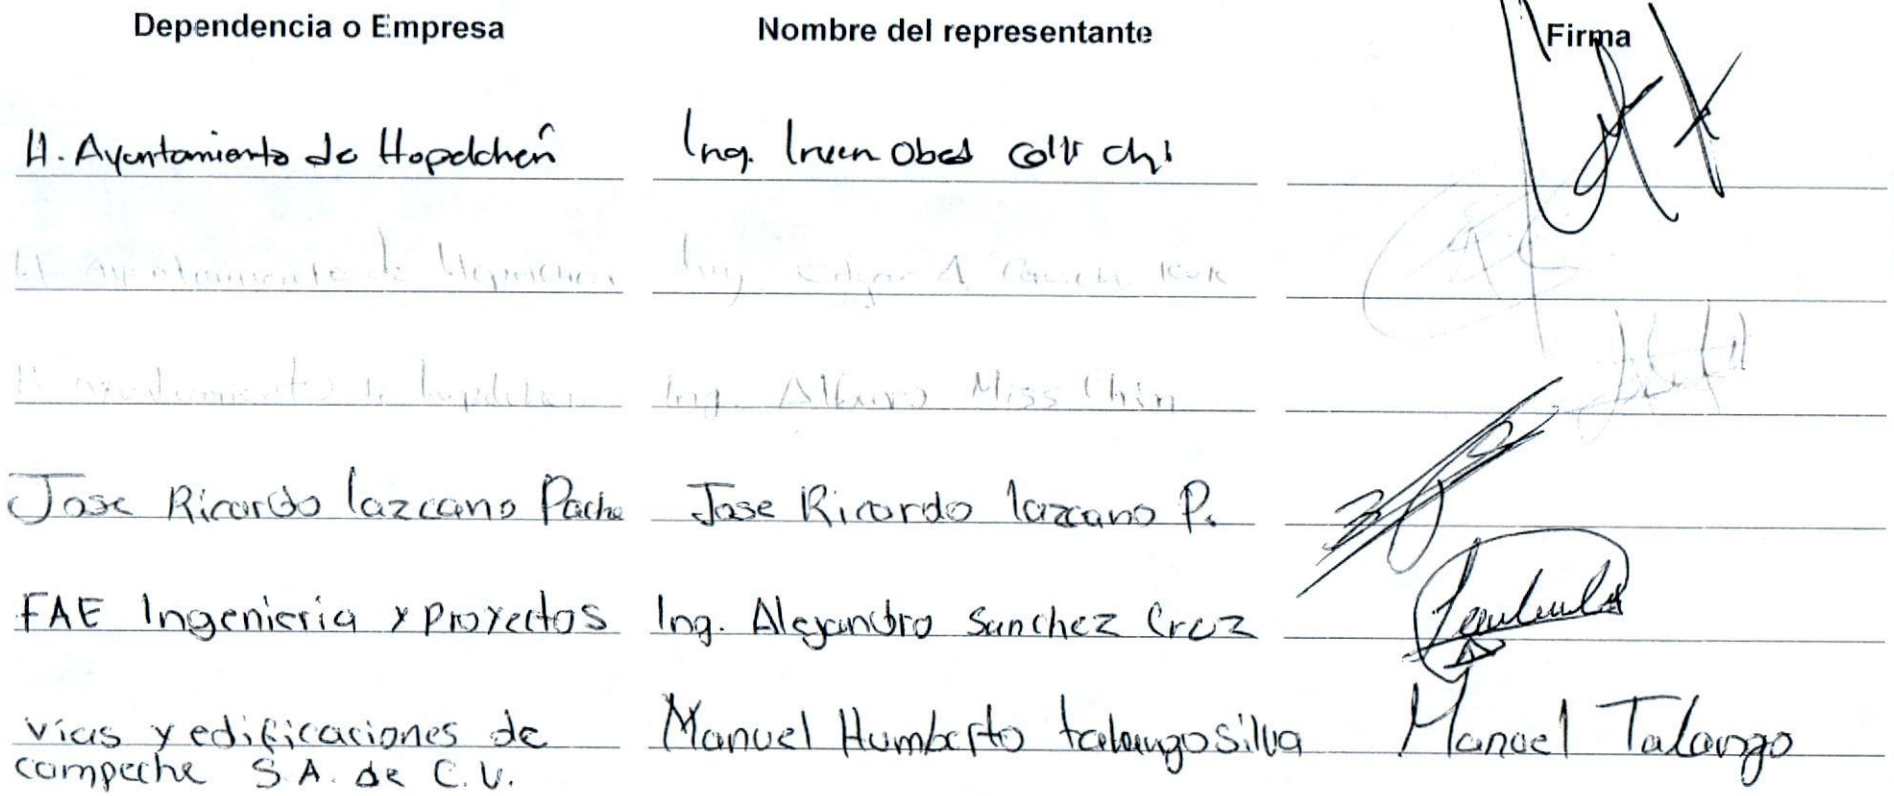 Dependencia o Empresa Nombre del representante Firma
H. Ayuntamiento de Hopelchén Ing. Obed chi
H. Ayuntamiento de Hopelchen Ing. Edgar A
H. ayuntamiento de hopelchen Ing. Alvaro Miss Chin
Jose Ricardo lazcano Pache Jose Ricardo lazcano P.
FAE Ingenieria y proyectos Ing. Alejandro Sanchez Cruz
vias y edificaciones de Manuel Humberto talango silva Manuel Talango
campeche S.A. de C.V.